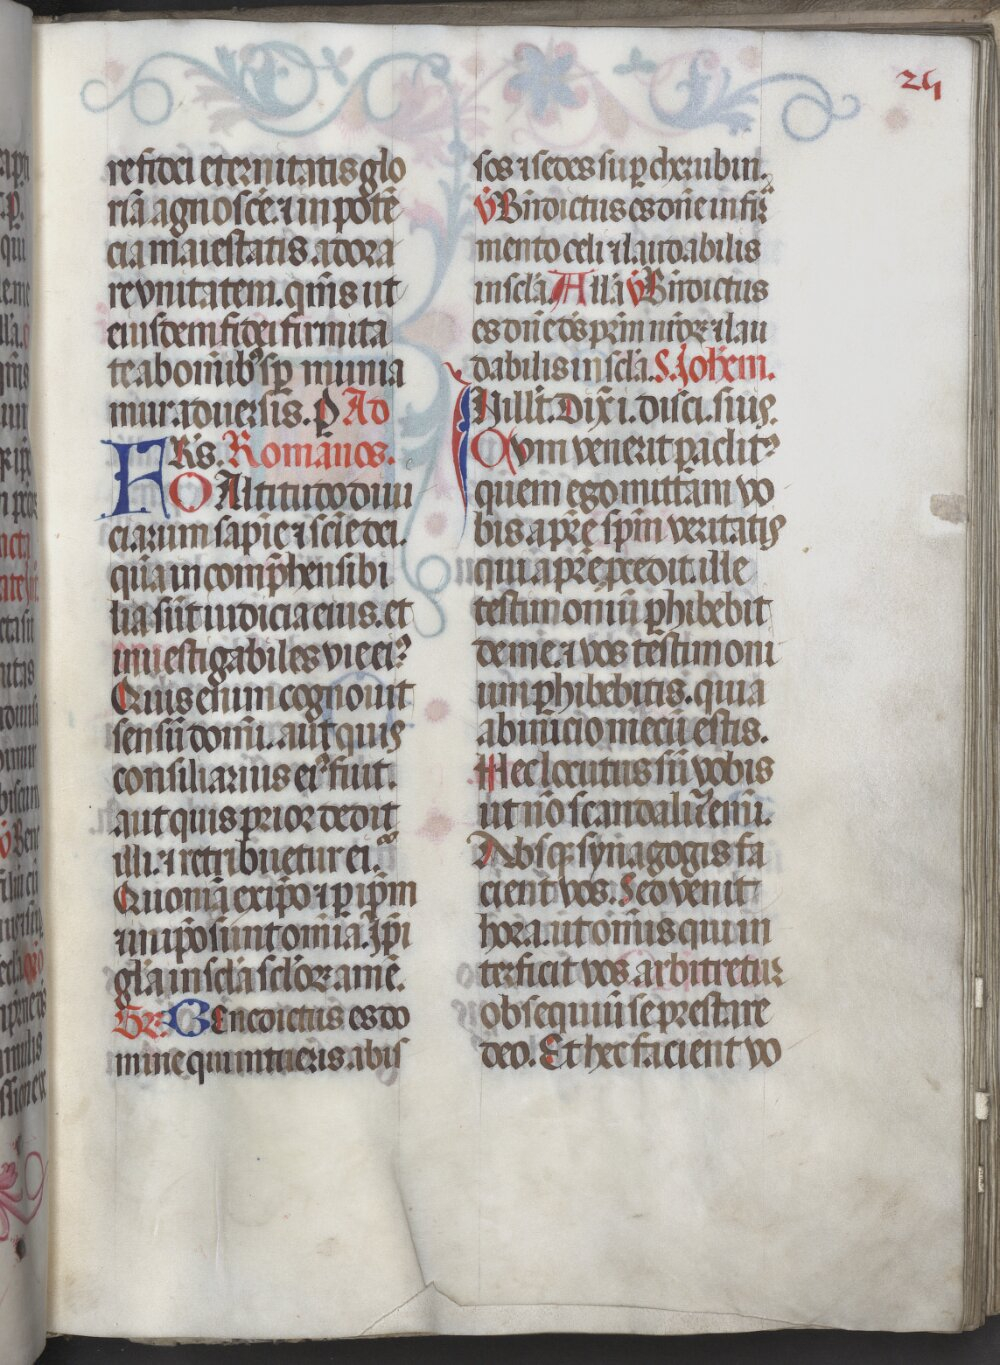 24
re fidei eternitatis glo
riā agnosce͛. ⁊ in potē
cia maiestatis adora
re vnitatem. qm̄s ut
eiusdem fidei firmita
te ab om̄ibꝰ sp̄ munia
mur aduersis. P Ad
Romanos.
FRs̄.
O Altitudo diui
ciarum sapīe ⁊ scīe dei.
quā incomp̄hensibi
lia sūt iudicia eius. et
inuestigabiles vie eiꝰ
Quis enim cognouit
sensū domī. aut quis
consiliarius eiꝰ fuit.
aut quis prior dedit
illi. ⁊ retribuetur ei.
Quoniā ex ip̄o ⁊ p ip̄m
⁊ in ip̄o sunt om̄ia. Ip̄i
gl̄a in scl̄a scl̄oꝝ amē.
Gr̄. Benedictus es do
mine qui intueris abis
sos ⁊ sedes sup cherubin.
v̄ Bn̄dictus es dn̄e in fir
mento celi ⁊ laudabilis
in scl̄a. All̄a v̄ Bn̄dictus
es dn̄e ds̄ prm̄ nr̄oꝝ ⁊ lau
dabilis in scl̄a. S. Johem.
IN ill̄ t̄. Dix̄ i. disci. suis.
Qvm venerit paclitꝰ
quem ego mittam vo
bis a pr̄e sp̄m veritatis
qui a pr̄e p̄cedit. ille
testimoniū phibebit
de me. ⁊ vos testimoni
um phibebitis. quia
ab inicio mecū estis.
Hec locutus sū vobis
ut nō scandaliȥemī.
Absqꝫ synagogis fa
cient vos. Sed venit
hora. ut om̄is qui in
terficit vos arbitretur
obsequiū se prestare
deo. Et hec facient vo